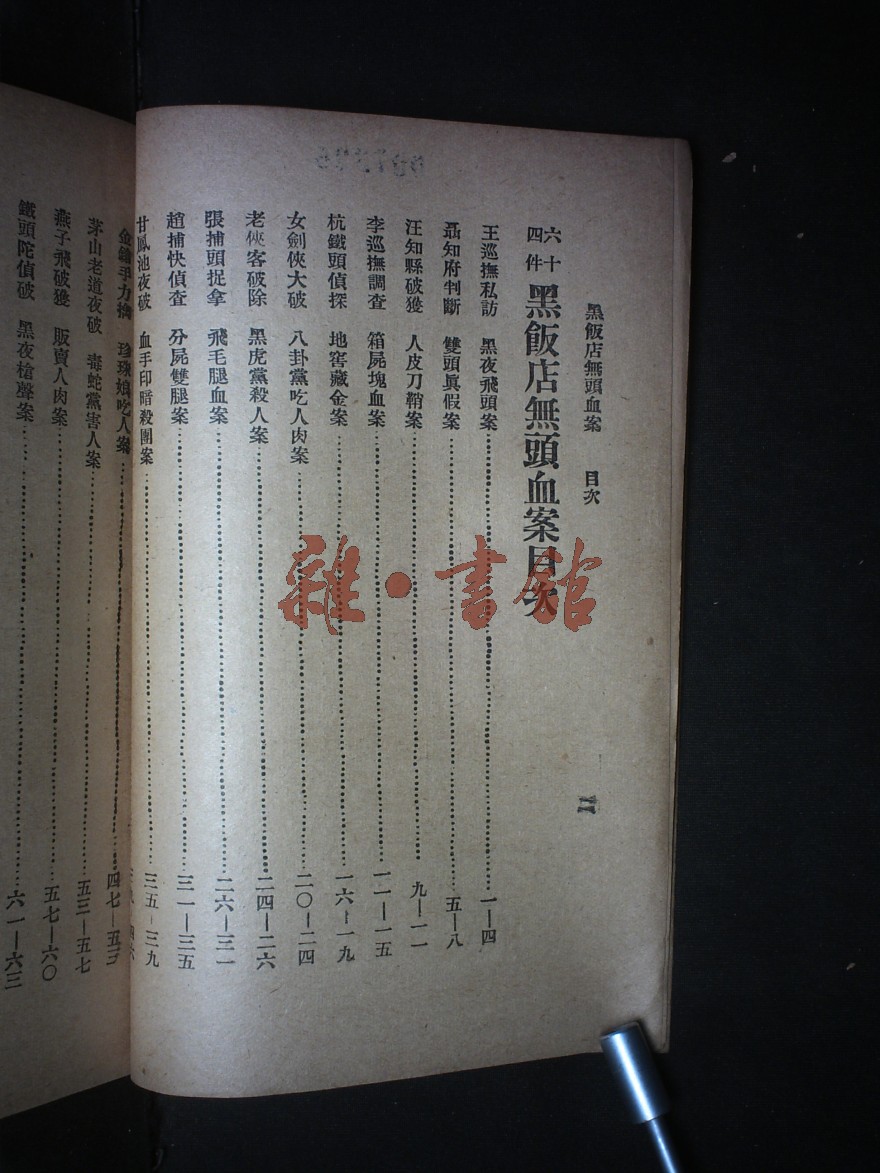 黑飯店無頭血案 目次 二
六十四件 黑飯店無頭血案目次
王巡撫私訪 黑夜飛頭案 一—四
聶知府判斷 雙頭眞假案 五—八
汪知縣破獲 人皮刀鞘案 九—一一
李巡撫調查 箱屍塊血案 一一—一五
杭鐵頭偵探 地窖藏金案 一六—一九
女劍俠大破 八卦黨吃人肉案 二〇—二四
老俠客破除 黑虎黨殺人案 二四—二六
張捕頭捉拿 飛毛腿血案 二六—三一
趙捕快偵查 分屍雙腿案 三一—三五
甘鳳池夜破 血手印暗殺團案 三五—三九
四六
金鏢手力擒 珍珠娘吃人案 四七—五三
茅山老道夜破 毒蛇黨害人案 五三—五七
燕子飛破獲 販賣人肉案 五七—六〇
鐵頭陀偵破 黑夜槍聲案 六一—六三
雜·書館